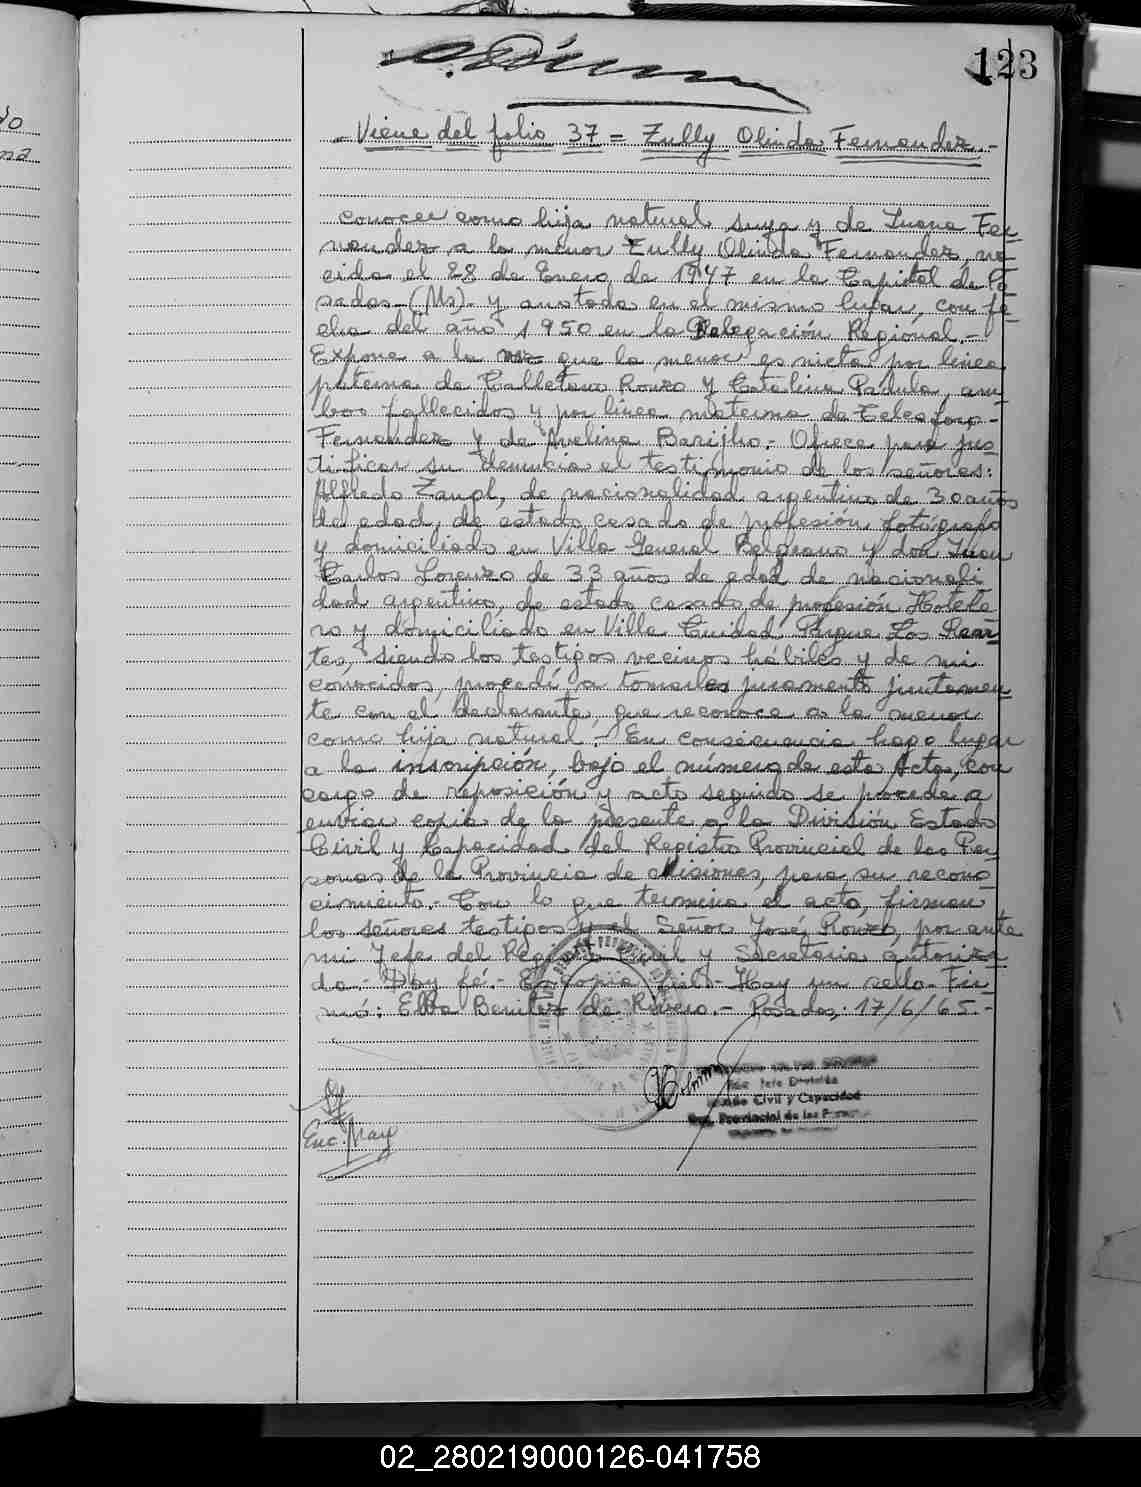 123
- Viene del folio 37 = Zully Olinda Fernandez.-
conocer como hija natural suya y de Juana Fer-
nandez a la menor Zully Olinda Fernandez, na-
cida el 28 de Enero de 1947 en la Capital de Po-
sadas-(Ms)- y anotada en el mismo lugar, con fe-
cha del año 1950 en la Delegación Regional.-
Expone a la vez que la menor es nieta por linea
paterna de Calletano Rouzo y Catalina Padula, am-
bos fallecidos y por linea materna de Celeaforo-
Fernandez y de Avelina Barijho.- Ofrece para jus-
tificar su denuncia el testimonio de los señores:
Alfredo Zaugl, de nacionalidad argentino de 30 años
de edad, de estado casado de profesión fotógrafo
y domiciliado en Villa General Belgrano y don Juan
Carlos Lorenzo de 33 años de edad de nacionali
dad argentino, de estado casado, de profesión Hotele
ro y domiciliado en Villa Ciudad Parque Los Rear-
tes, siendo los testigos vecinos hábiles y de mi
conocidos, procedí a tomarles juramento juntamen-
te con el declarante, que reconoce a la menor
como hija natural.- En consecuencia hago lugar
a la inscripción, bajo el número de esta Acta, con
cargo de reposición y acto seguido se procede a
enviar copia de la presente a la División Estado
Civil y Capacidad del Registro Provincial de las Per-
sonas de la Provincia de Misiones, para su recono-
cimiento.- Con lo que termina el acto, firman
los señores testigos y el Señor José Rouzo, por ante
mi Jefe del Registro Civil y Secretaria autorizan
do.- Doy fé.- Es copia fiel.- Hay un sello.- Fir-
mó: Elba Benitez de Rivero.- Posadas, 17/6/65.-
Jefe División
Estado Civil y Capacidad
Reg. Provincial de las Personas
Enc. May
02_280219000126-041758